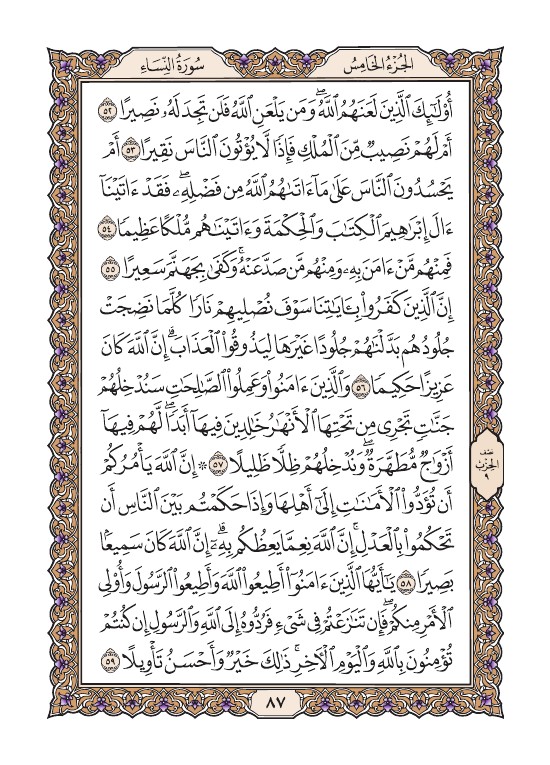 الجُزْءُ الخَامِسُ
سُورَةُ النِّسَاءِ
أُوْلَٰٓئِكَ ٱلَّذِينَ لَعَنَهُمُ ٱللَّهُۖ وَمَن يَلْعَنِ ٱللَّهُ فَلَن تَجِدَ لَهُۥ نَصِيرًا ٥٢
أَمْ لَهُمْ نَصِيبٌ مِّنَ ٱلْمُلْكِ فَإِذًا لَّا يُؤْتُونَ ٱلنَّاسَ نَقِيرًا ٥٣ أَمْ
يَحْسُدُونَ ٱلنَّاسَ عَلَىٰ مَآ ءَاتَىٰهُمُ ٱللَّهُ مِن فَضْلِهِۦۖ فَقَدْ ءَاتَيْنَآ
ءَالَ إِبْرَٰهِيمَ ٱلْكِتَٰبَ وَٱلْحِكْمَةَ وَءَاتَيْنَٰهُم مُّلْكًا عَظِيمًا ٥٤
فَمِنْهُم مَّنْ ءَامَنَ بِهِۦ وَمِنْهُم مَّن صَدَّ عَنْهُۚ وَكَفَىٰ بِجَهَنَّمَ سَعِيرًا ٥٥
إِنَّ ٱلَّذِينَ كَفَرُواْ بِـَٔايَٰتِنَا سَوْفَ نُصْلِيهِمْ نَارًا كُلَّمَا نَضِجَتْ
جُلُودُهُم بَدَّلْنَٰهُمْ جُلُودًا غَيْرَهَا لِيَذُوقُواْ ٱلْعَذَابَۗ إِنَّ ٱللَّهَ كَانَ
عَزِيزًا حَكِيمًا ٥٦ وَٱلَّذِينَ ءَامَنُواْ وَعَمِلُواْ ٱلصَّٰلِحَٰتِ سَنُدْخِلُهُمْ
جَنَّٰتٍ تَجْرِى مِن تَحْتِهَا ٱلْأَنْهَٰرُ خَٰلِدِينَ فِيهَآ أَبَدًاۖ لَّهُمْ فِيهَآ
أَزْوَٰجٌ مُّطَهَّرَةٌۖ وَنُدْخِلُهُمْ ظِلًّا ظَلِيلًا ٥٧ ۞ إِنَّ ٱللَّهَ يَأْمُرُكُمْ
أَن تُؤَدُّواْ ٱلْأَمَٰنَٰتِ إِلَىٰٓ أَهْلِهَا وَإِذَا حَكَمْتُم بَيْنَ ٱلنَّاسِ أَن
تَحْكُمُواْ بِٱلْعَدْلِۚ إِنَّ ٱللَّهَ نِعِمَّا يَعِظُكُم بِهِۦٓۗ إِنَّ ٱللَّهَ كَانَ سَمِيعًۢا
بَصِيرًا ٥٨ يَٰٓأَيُّهَا ٱلَّذِينَ ءَامَنُوٓاْ أَطِيعُواْ ٱللَّهَ وَأَطِيعُواْ ٱلرَّسُولَ وَأُوْلِى
ٱلْأَمْرِ مِنكُمْۖ فَإِن تَنَٰزَعْتُمْ فِى شَىْءٍ فَرُدُّوهُ إِلَى ٱللَّهِ وَٱلرَّسُولِ إِن كُنتُمْ
تُؤْمِنُونَ بِٱللَّهِ وَٱلْيَوْمِ ٱلْأَخِرِۚ ذَٰلِكَ خَيْرٌ وَأَحْسَنُ تَأْوِيلًا ٥٩
نصف
الحزب
٩
٨٧